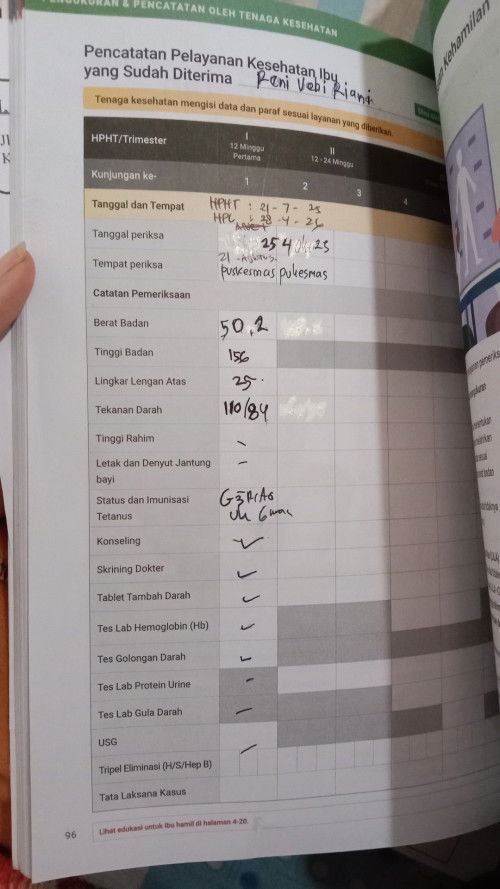 PENGUKURAN & PENCATATAN OLEH TENAGA KESEHATAN
Pencatatan Pelayanan Kesehatan Ibu
yang Sudah Diterima Reni Vebi Riani
Tenaga kesehatan mengisi data dan paraf sesuai layanan yang diberikan.
HPHT/Trimester
I
12 Minggu
Pertama
II
12 - 24 Minggu
Kunjungan ke-
1 2 3 4
Tanggal dan Tempat
HPHT : 21 - 7 - 25
HPL : 28 - 4 - 26
Tanggal periksa
25
Tempat periksa
puskesmas pukesmas
Catatan Pemeriksaan
Berat Badan 50,2
Tinggi Badan 156
Lingkar Lengan Atas 25.
Tekanan Darah 110/84
Tinggi Rahim -
Letak dan Denyut Jantung -
bayi
Status dan Imunisasi
Tetanus
Konseling ✓
Skrining Dokter ✓
Tablet Tambah Darah ✓
Tes Lab Hemoglobin (Hb) ✓
Tes Golongan Darah ✓
Tes Lab Protein Urine -
Tes Lab Gula Darah -
USG
Tripel Eliminasi (H/S/Hep B)
Tata Laksana Kasus
96
Lihat edukasi untuk ibu hamil di halaman 4-20.
Kehamilan